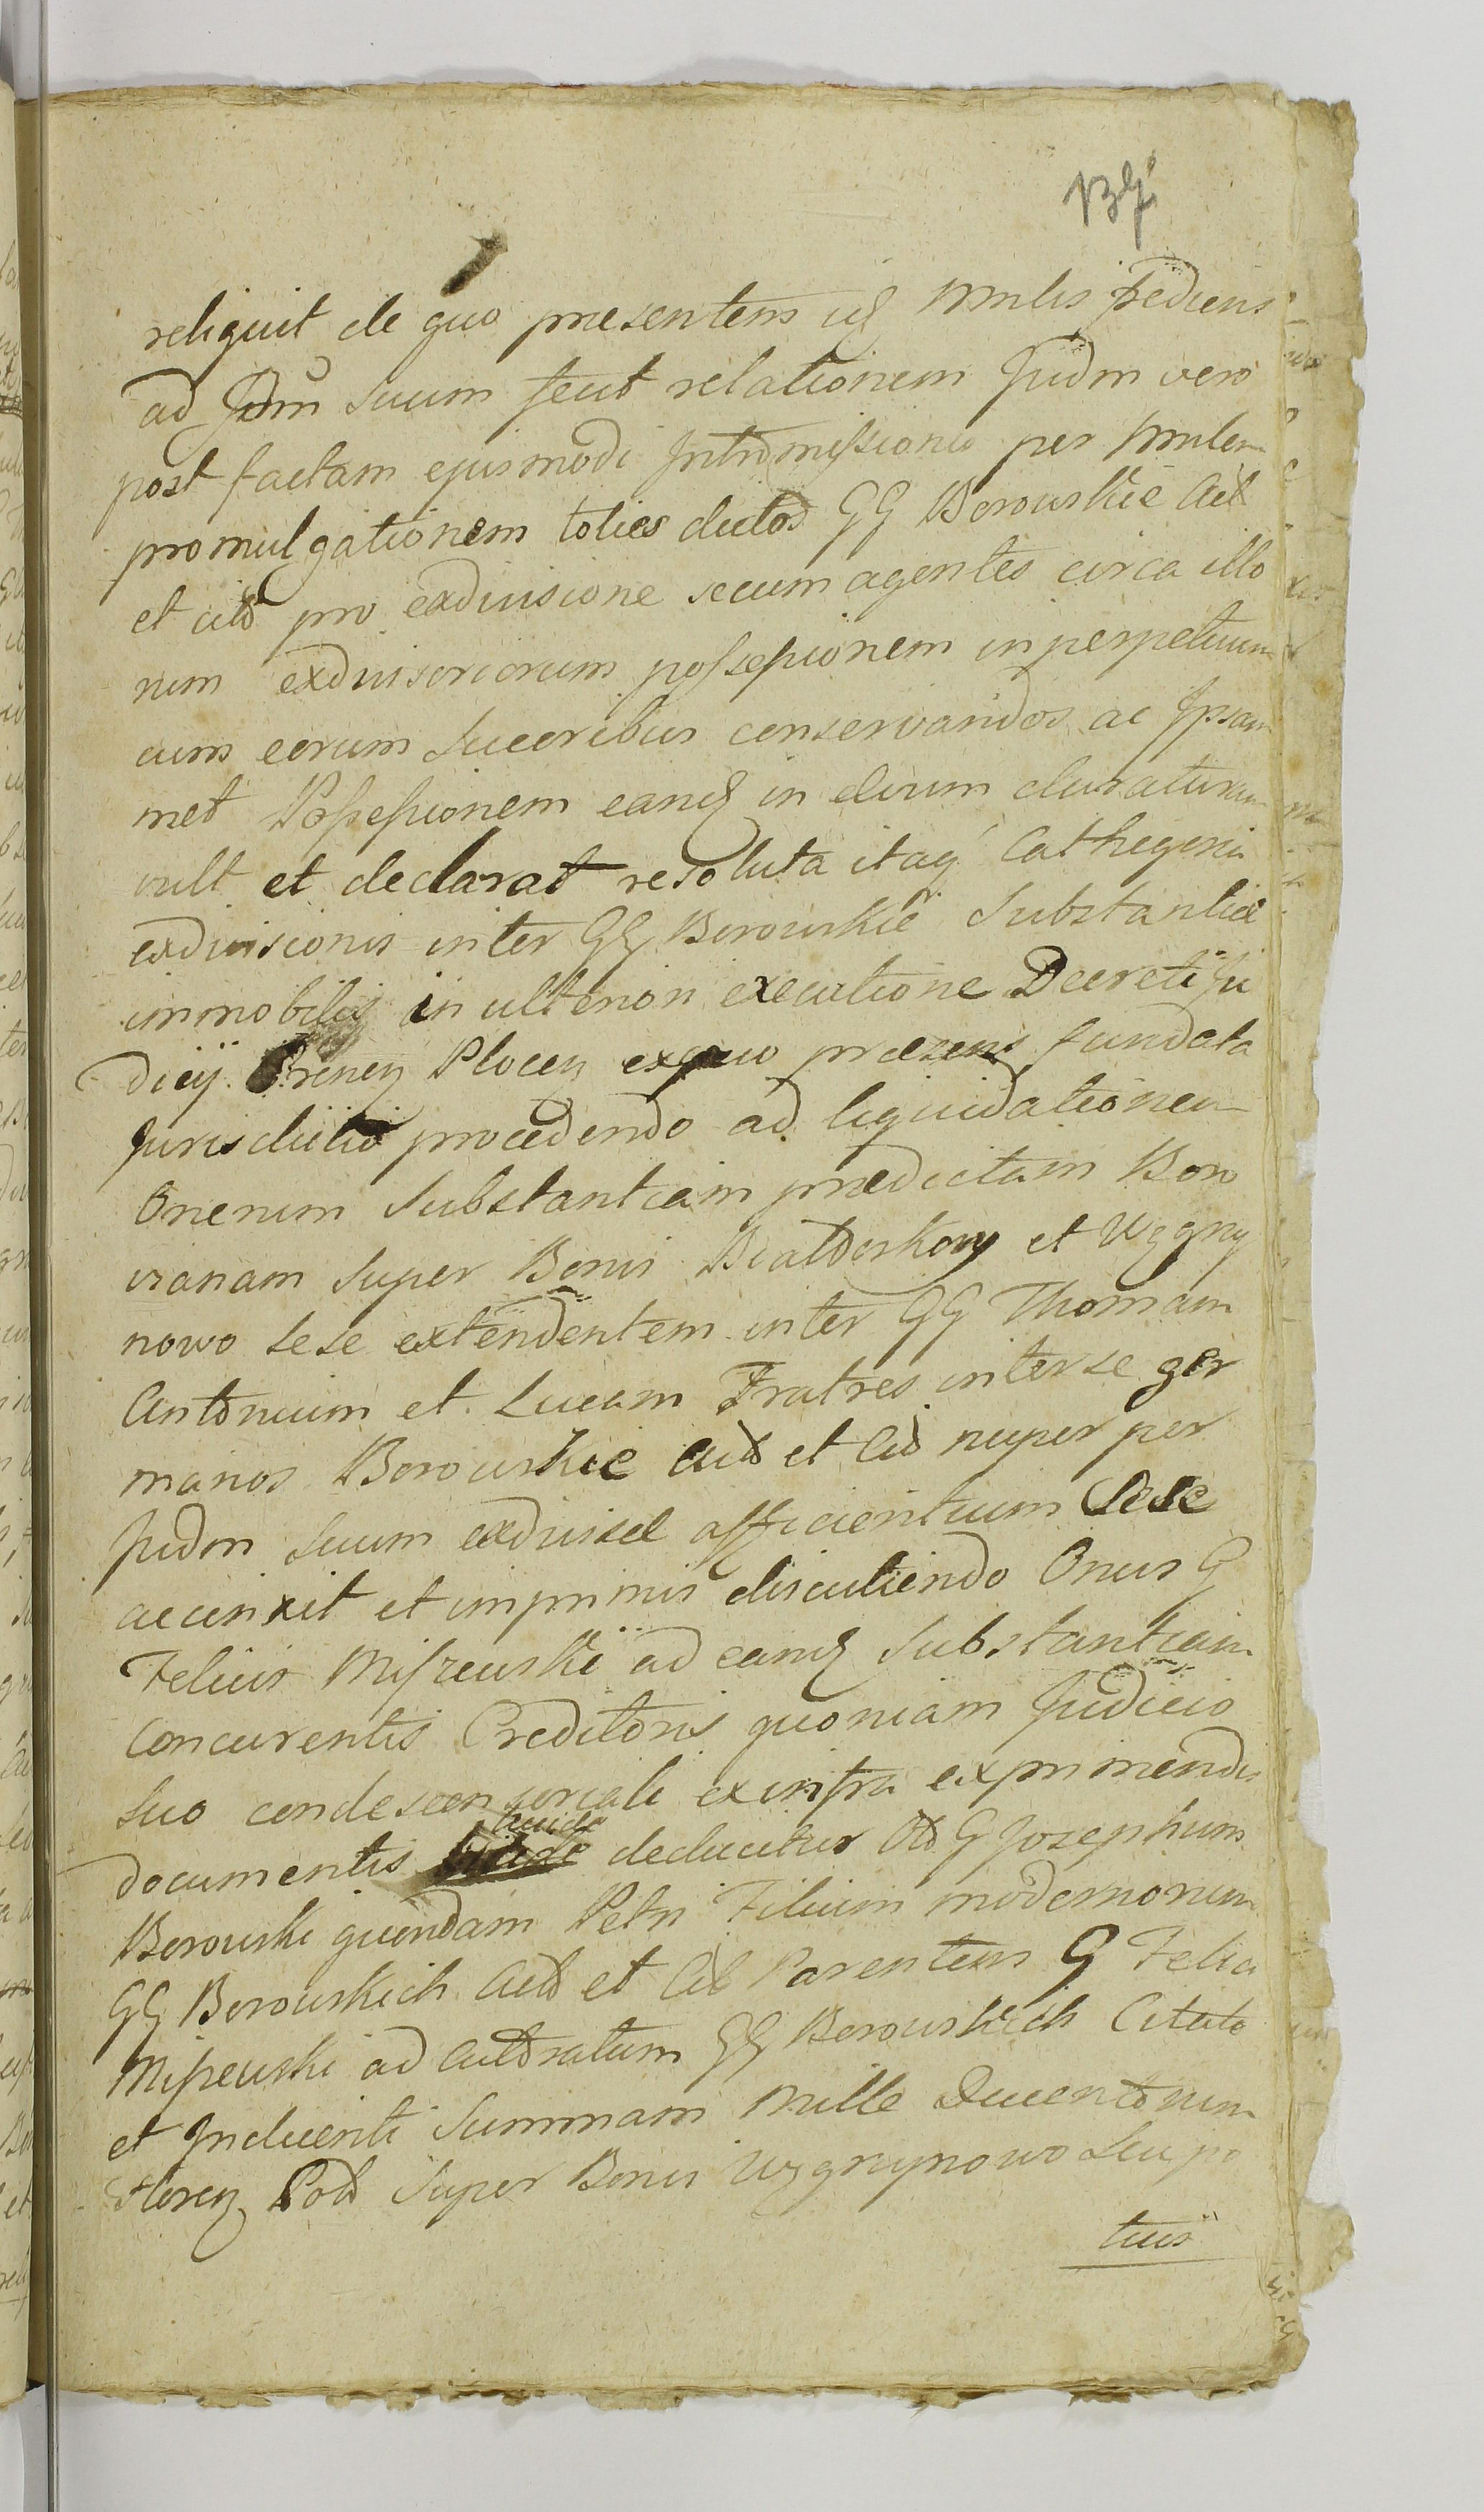 reliquit de quo presentem idq Mnlis rediens
ad Jdm suum fecit relationem Judm vero
post factam ejusmodi Intromissionis per Mnlem
promulgationem toties dictos GG Borowskie Act
et citõ pro exdivisione secum agentes circa illo
rum exdivisoriorum possessionem in perpetuum
cum eorum Succoribus conservandos ac Ipsam
met Possessionem eandq in ævum duraturam
vult et declarat resoluta itaq Cathegoria
exdivisionis inter GG Borowskie Substantiæ
immobilis in ulteriori executione Decreti Ju
dicij Trenen Plocen ex quo præsens fundata
Jurisdictio procedendo ad liquidationem
Onerum Substantiam prædictam Boro
vianam super Bonis Białoskory et Wggny
nowo sese extendentem inter GG Thomam
Antonium et Lucam Fratres inter se ger
manos Borowskie Act et Cit nuper per
Judm suum exdivisæ afficientium Sese
accinxit et imprimis discutiendo Onus G
Felicis Miszewski ad eandq Substantiam
Concurentis Creditoris quoniam Judicio
suo condescensoriali ex infra exprimendis
documentis
deducitur Otd G Josephum
Borowski quondam Petri Filium modernorum
GG Borowskich Act et Cit Parentem G Felici
Miszewski ad Actoratum GG Borowskich Citato
et Inducenti Summam Mille Ducentorum
Floren Pol Super Bonis Wzgnynowo Seu po
tius